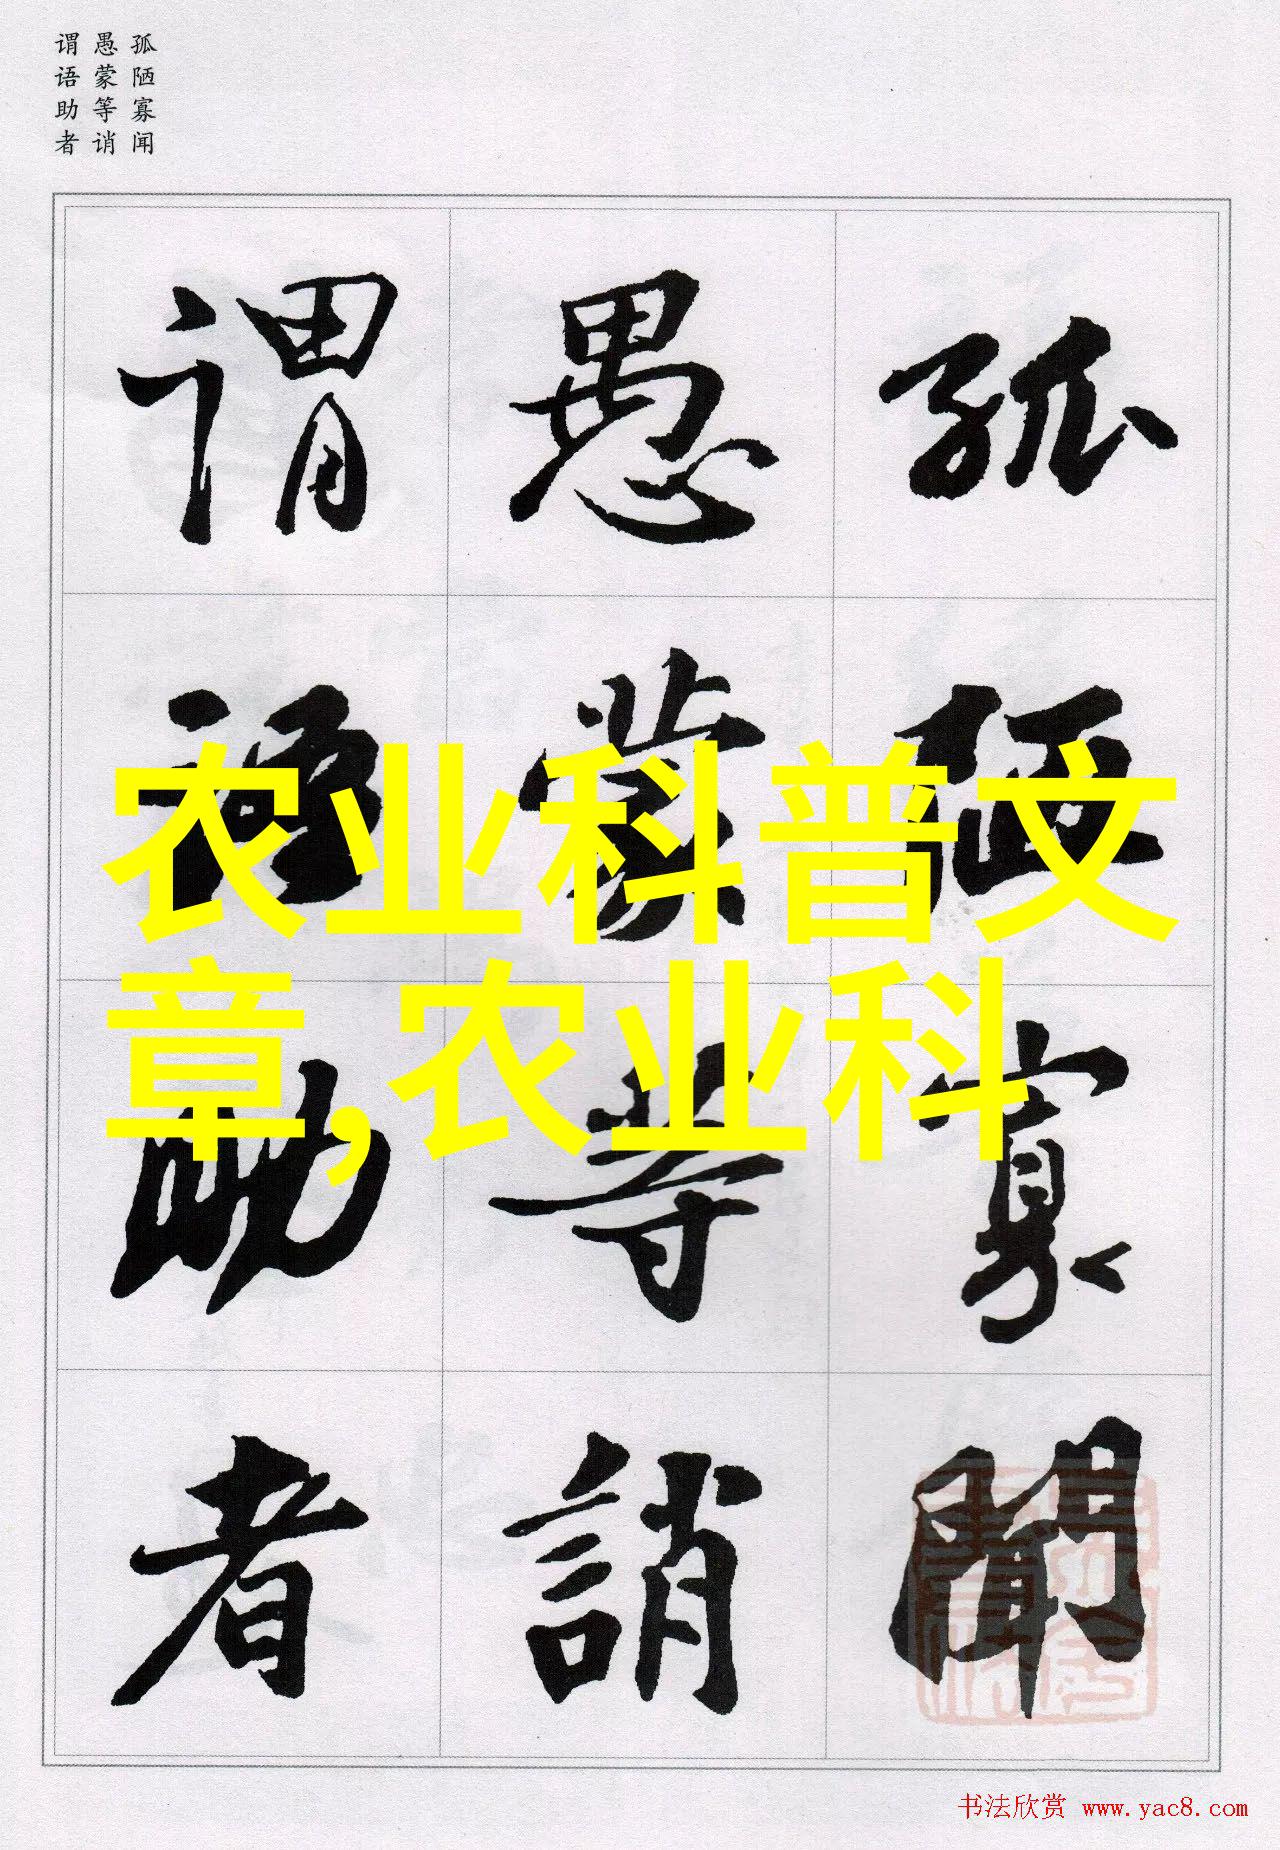 孤陋寡闻
愚蒙等诮
谓语助者
孤陋寡聞
愚蒙等誚
谓语助者
农业科普文
章,农业科
书法欣赏 www.yac8.com